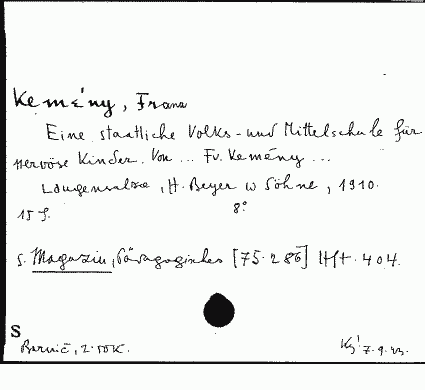 Kemény, Franz
Eine staatliche Volks- und Mittelschule für
nervöse Kinder. Von ... Fr. Kemény ...
Langensalza, H. Beyer u Söhne, 1910.
15 S. 8°
s. Magazin, Pädagogisches [75.286] Hft. 404.
S
2.50K. 7.9.